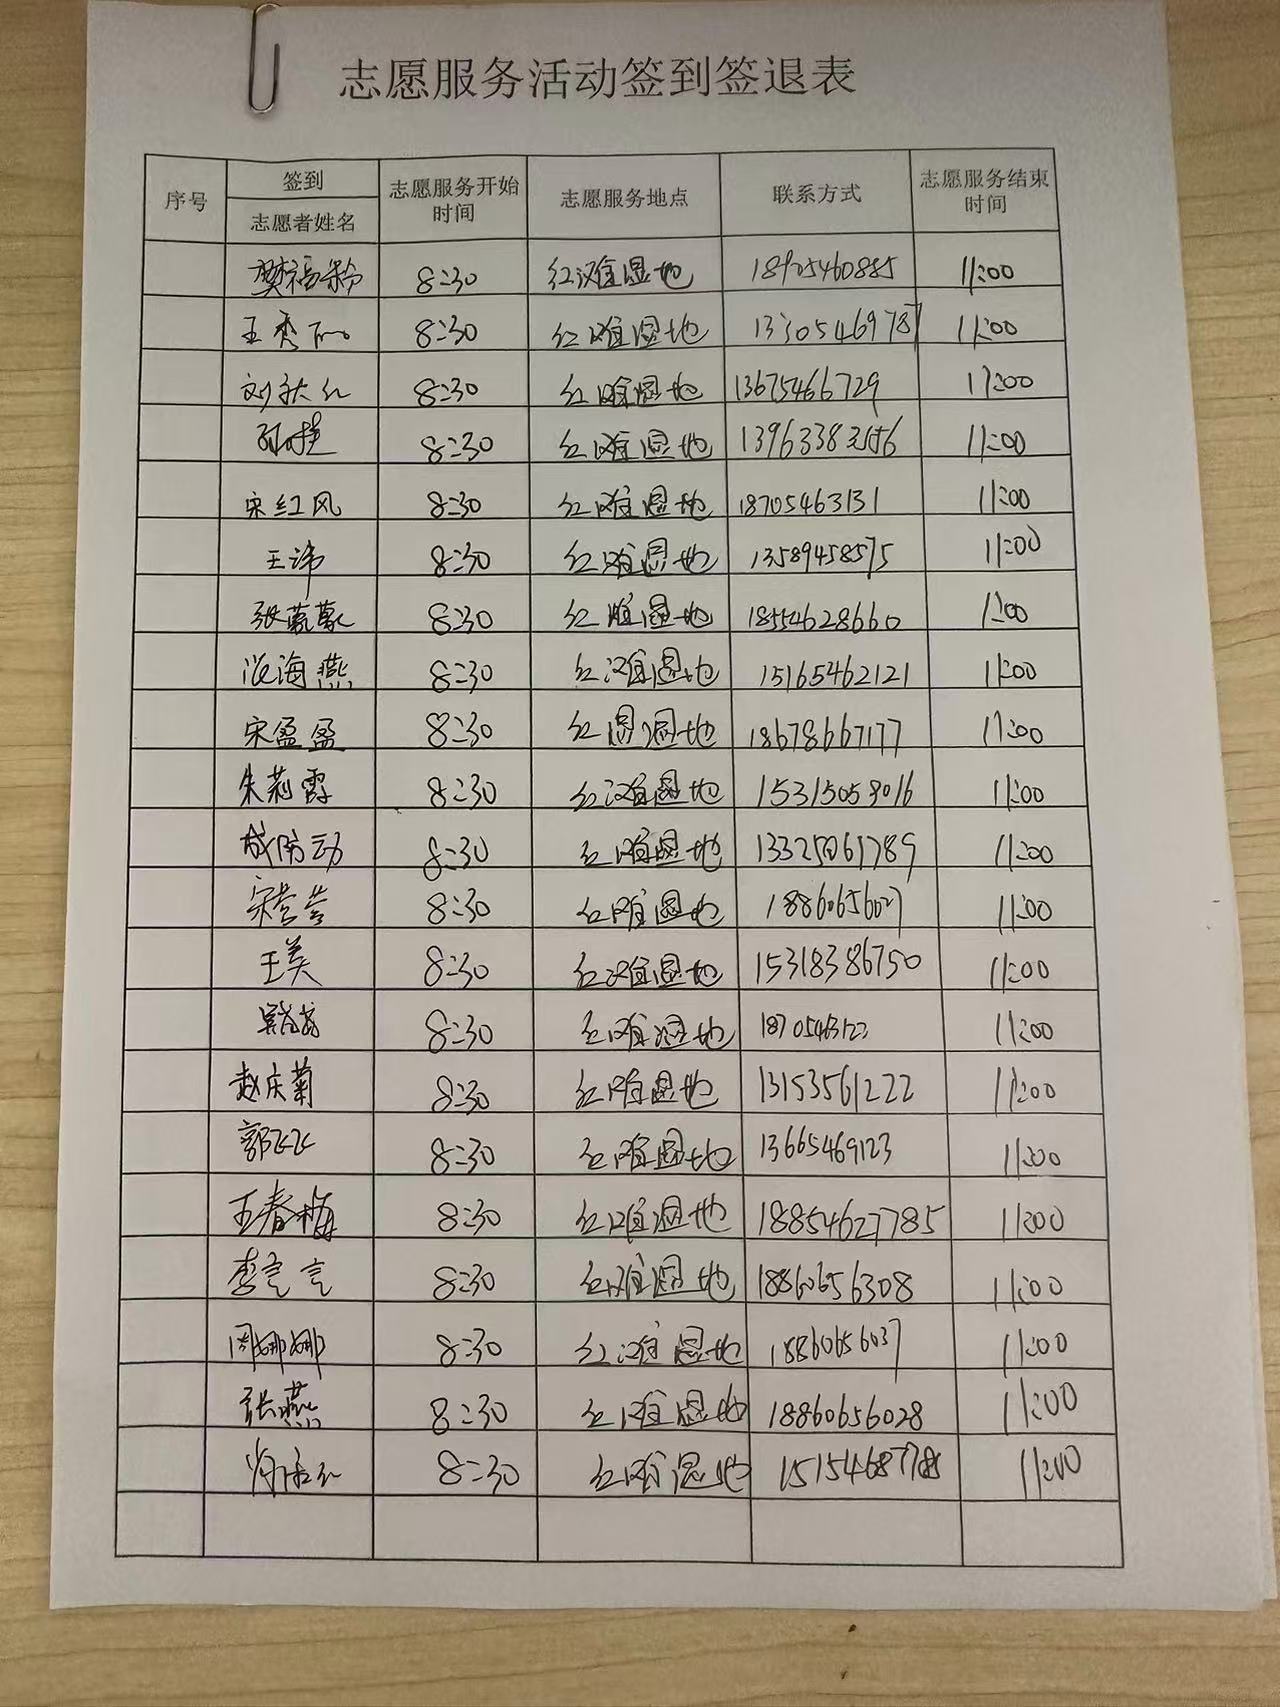 志愿服务活动签到签退表
序号 签到 志愿者姓名 志愿服务开始时间 志愿服务地点 联系方式 志愿服务结束时间
8:30 红滩湿地 18905460885 11:00
王秀 8:30 红滩湿地 13305469787 11:00
刘 红 8:30 红滩湿地 13675466729 11:00
8:30 红滩湿地 11:00
宋红风 8:30 红滩湿地 18705463131 11:00
王沛 8:30 红滩湿地 13589458575 11:00
张 8:30 红滩湿地 18554628660 11:00
范海燕 8:30 红滩湿地 15165462121 11:00
宋盈盈 8:30 红 湿地 18678667177 11:00
朱莉霞 8:30 红滩湿地 15315058016 11:00
8:30 红滩湿地 13325061789 11:00
宋芸芸 8:30 红滩湿地 18860656027 11:00
王美 8:30 红滩湿地 15318386750 11:00
8:30 红滩湿地 11:00
赵庆菊 8:30 红滩湿地 13153561222 11:00
郭飞飞 8:30 红滩湿地 13665469123 11:00
王春梅 8:30 红滩湿地 18854627785 11:00
李言言 8:30 红滩湿地 18860656308 11:00
周娜娜 8:30 红滩湿地 18860656037 11:00
张燕 8:30 红滩湿地 18860656028 11:00
8:30 红滩湿地 11:00